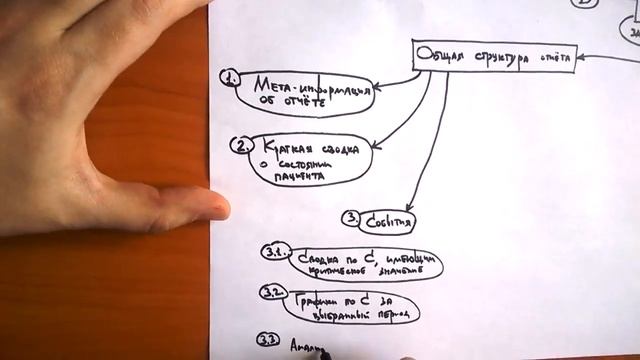 Общая структура отчёта
1.
Мета-информация
об отчёте
2.
Краткая сводка
о состоянии
пациента
3.
События
3.1.
Сводка по С, имеющим
критическое значение
3.2.
Графики по С за
выбранный период
3.3.